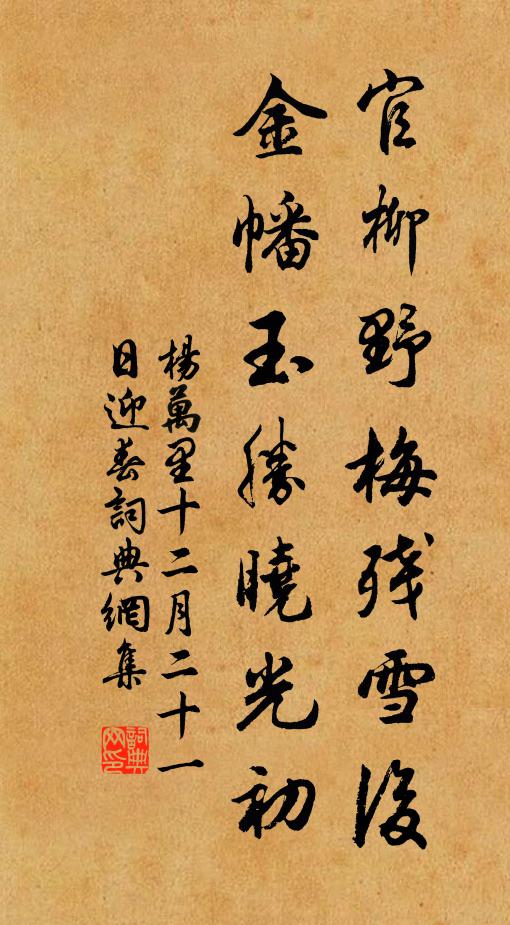 官柳野梅残雪後
金幡玉勝曉光初
楊萬里十二月二十一
日迎春詞典網集
詞典网印